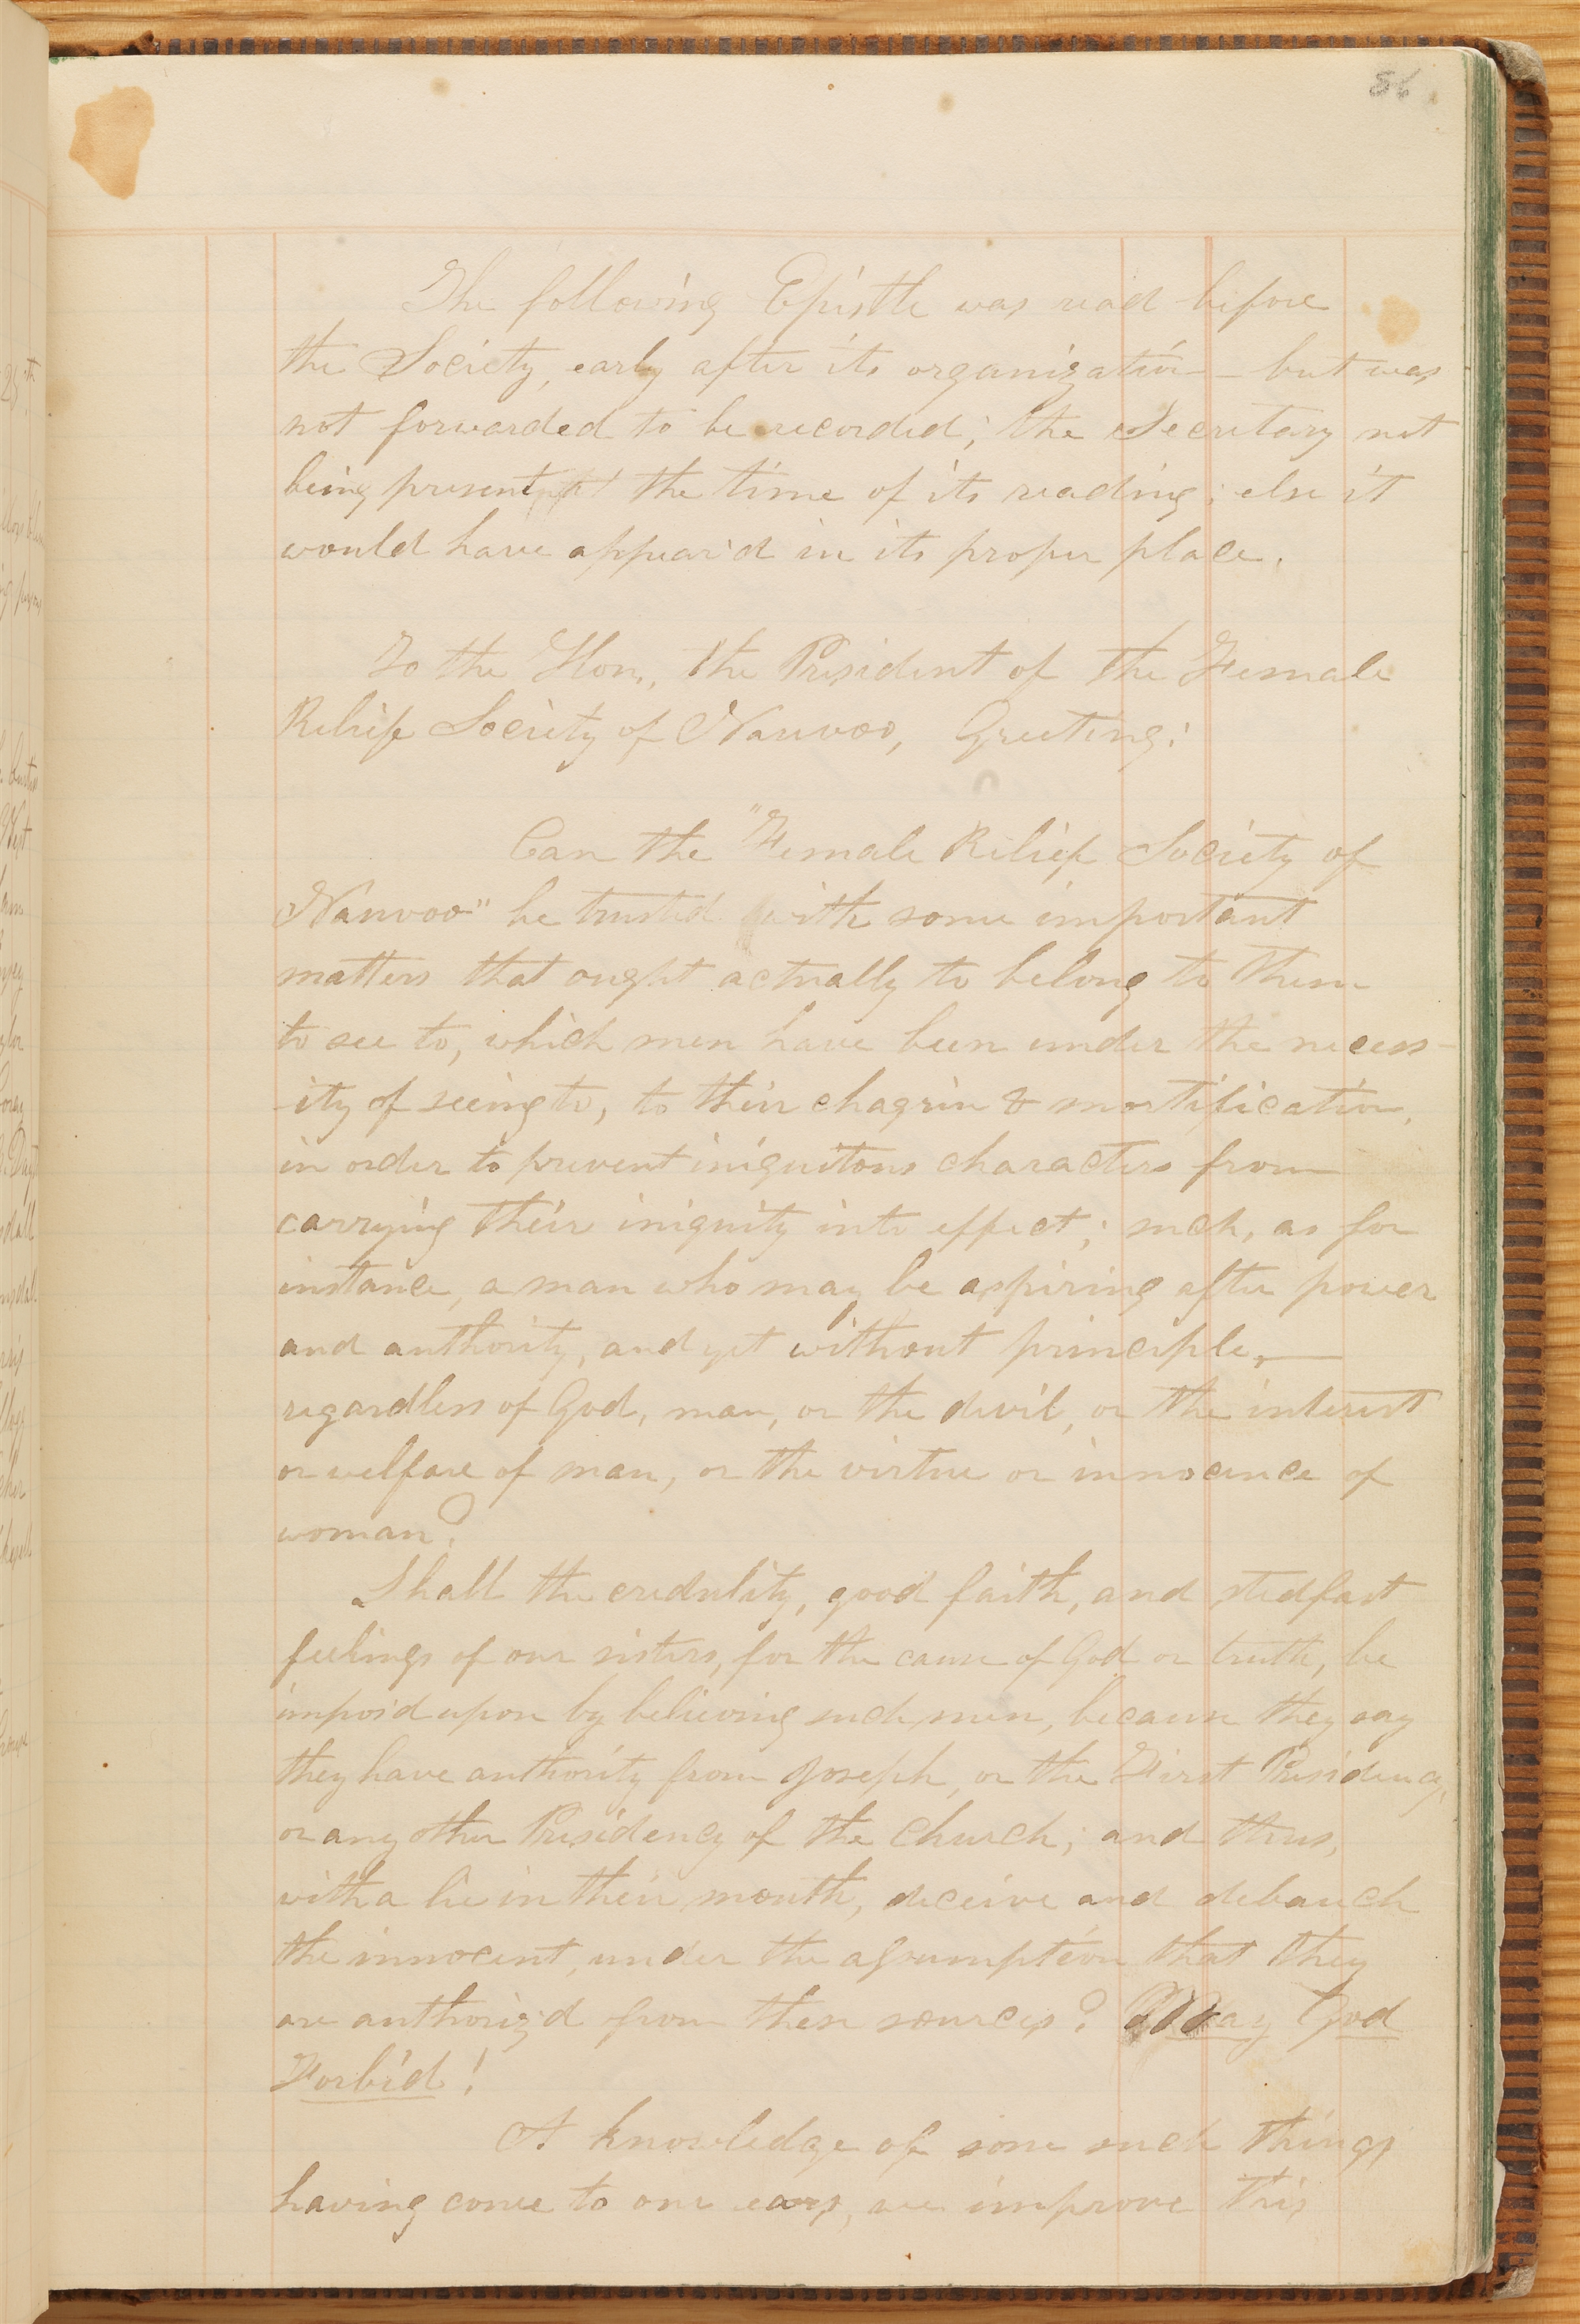 86
The following Epistle was read before
the Society, early after its organization — but was
not forwarded to be recorded; the Secretary not
being present at the time of its reading; else it
would have appear'd in its proper place.
To the Hon. the President of the Female
Relief Society of Nauvoo, Greeting:
Can the "Female Relief Society of
Nauvoo" be trusted with some important
matters that ought actually to belong to them
to see to, which men have been under the necess-
-ity of seeing to, to their chagrin & mortification,
in order to prevent iniquitous characters from
carrying their iniquity into effect; such, as for
instance, a man who may be aspiring after power
and authority, and yet without principle,—
regardless of God, man, or the devil, or the interest
or welfare of man, or the virtue or innocence of
woman?
Shall the credulity, good faith, and stedfast
feelings of our sisters, for the cause of God or truth, be
impos'd upon by believing such men, because they say
they have authority from Joseph, or the First Presidency,
or any other Presidency of the Church; and thus,
with a lie in their mouth, deceive and debauch
the innocent, under the assumption that they
are authoriz'd from these sources? May God
Forbid!
A knowledge of some such things
having come to our ears, we improve this